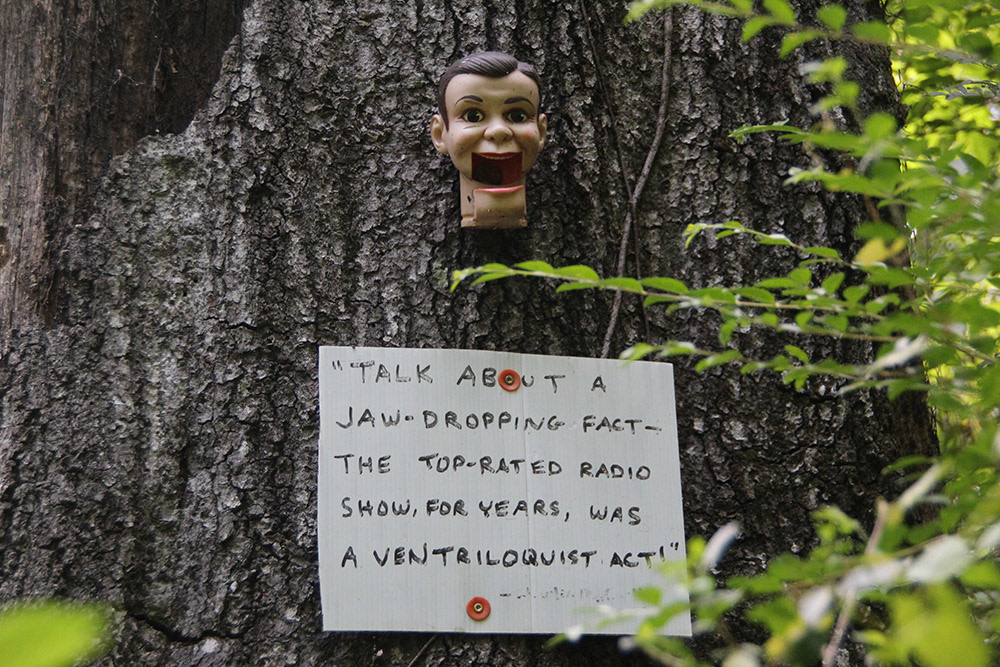 "TALK ABOUT A
JAW-DROPPING FACT-
THE TOP-RATED RADIO
SHOW, FOR YEARS, WAS
A VENTRILOQUIST ACT!"